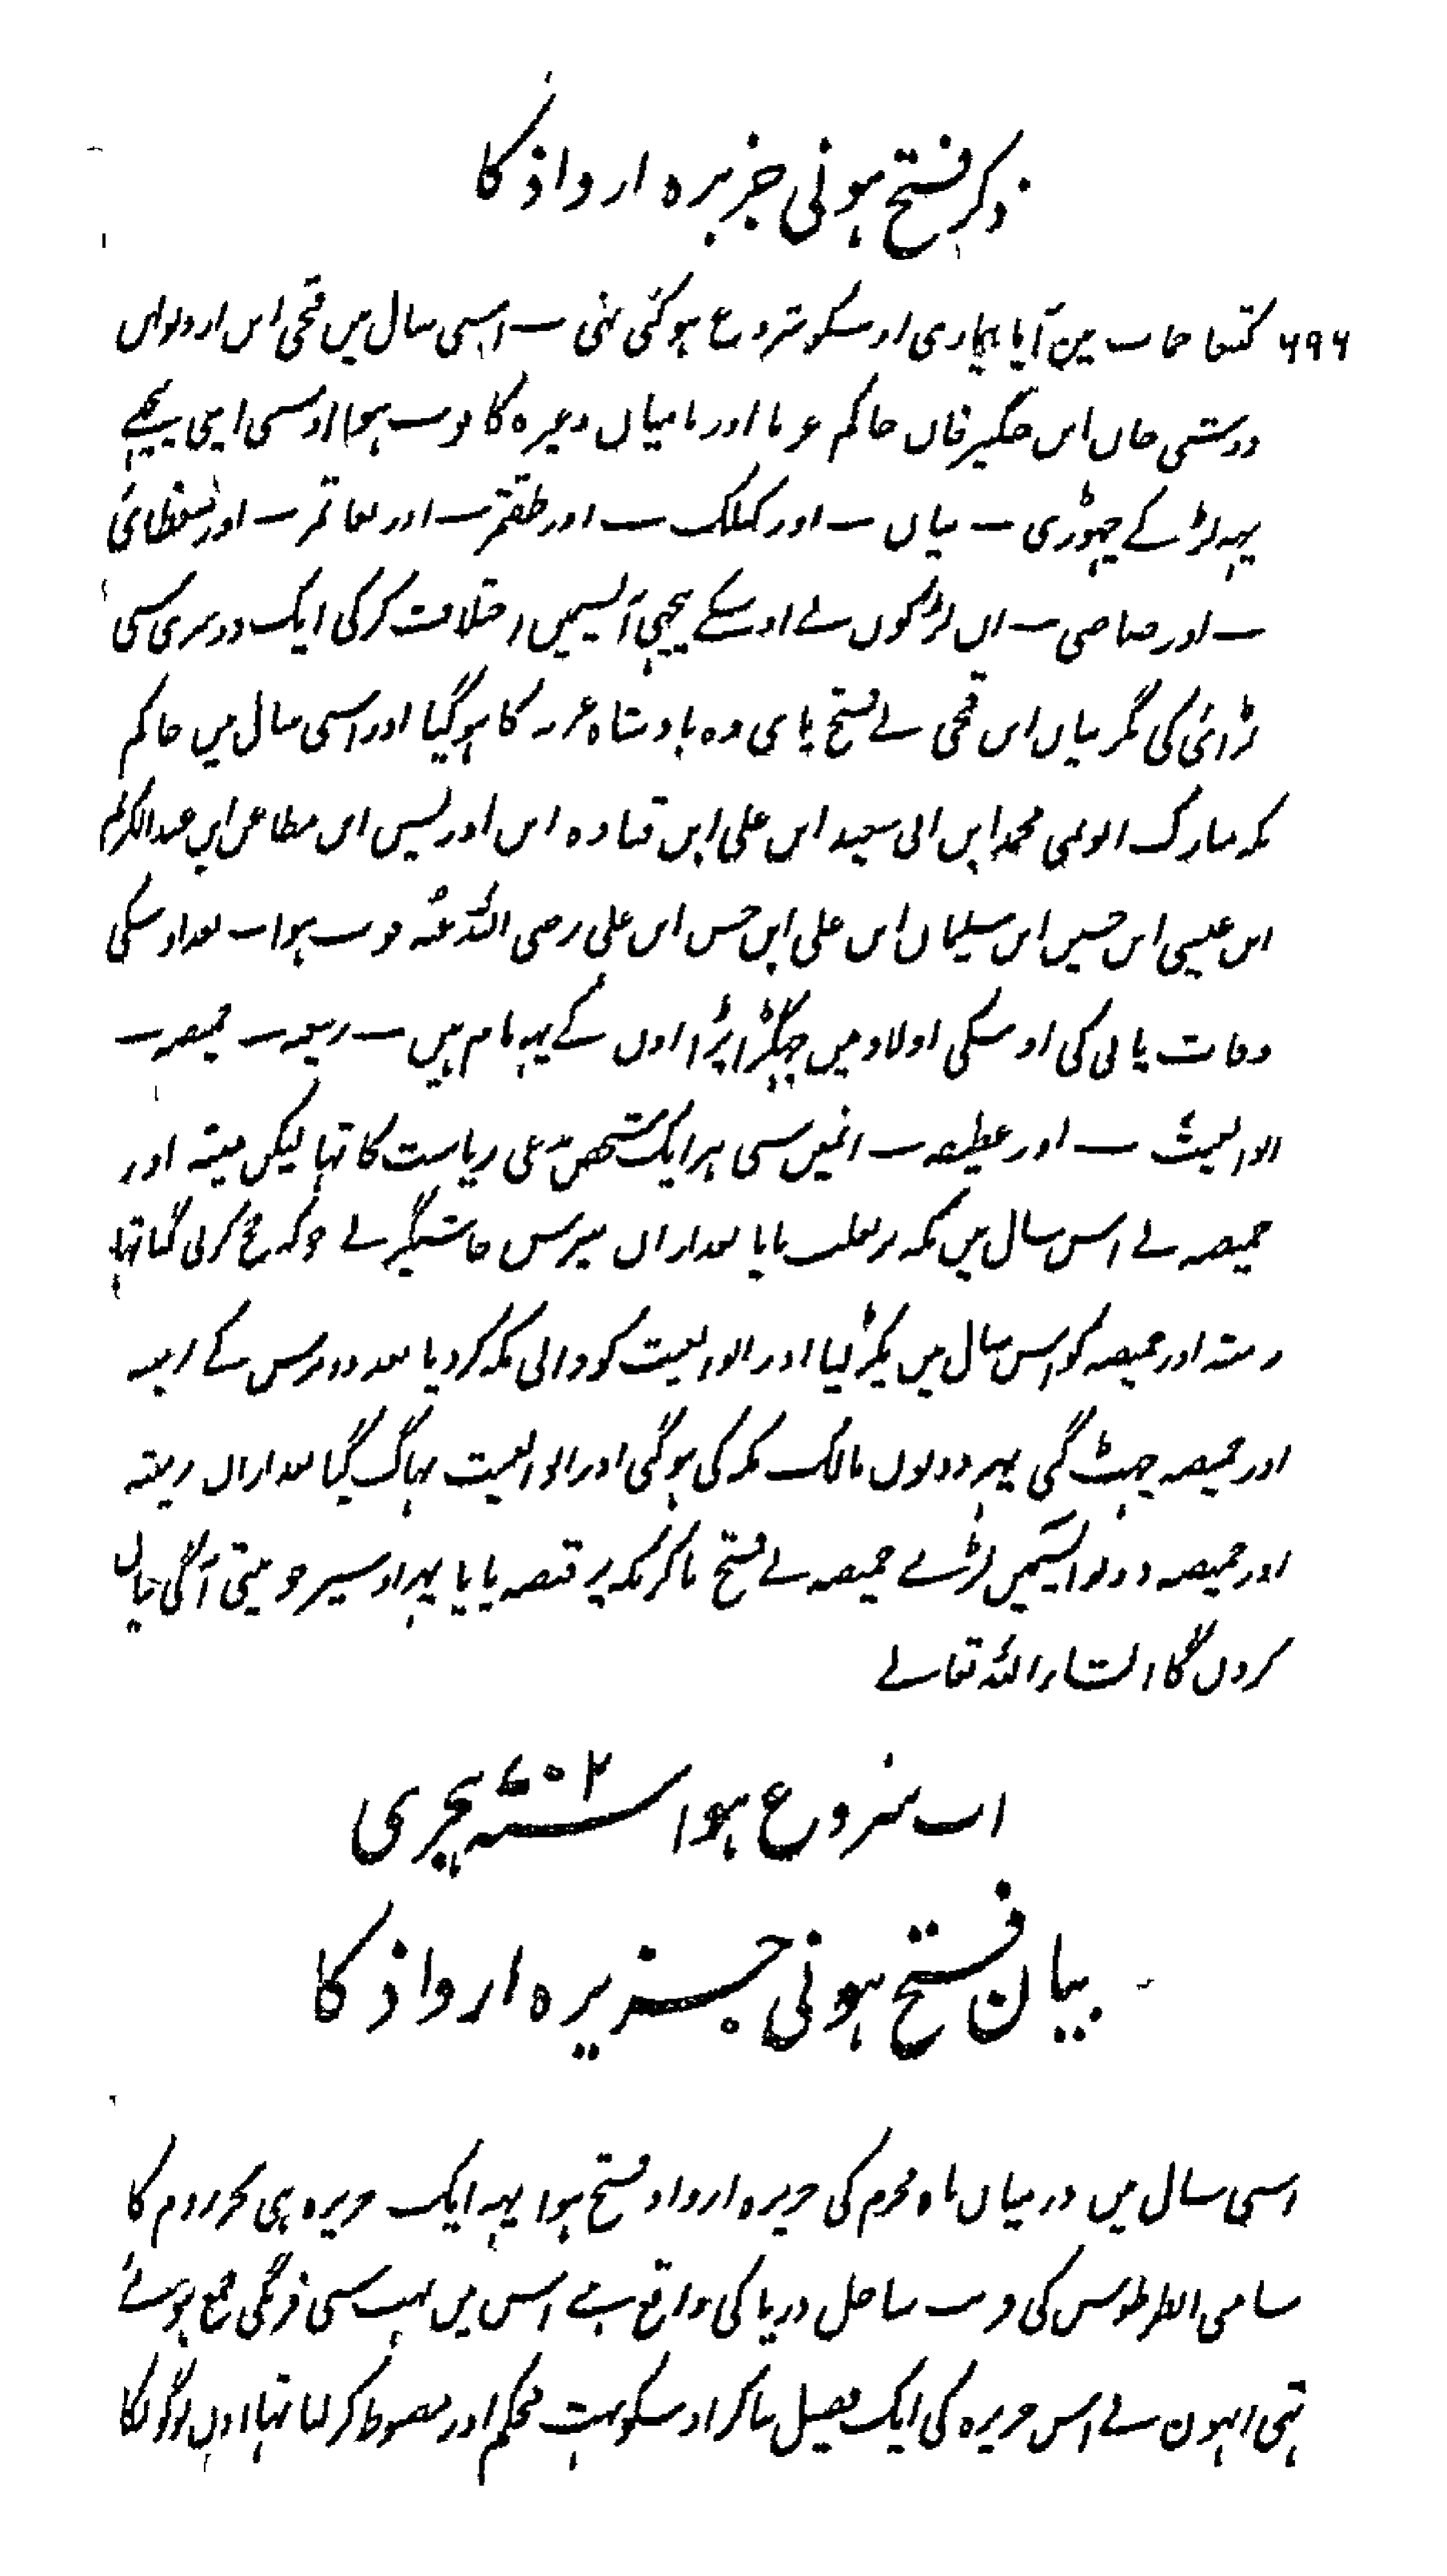 ذکر فتح ہونی جزیرہ ارواذ کا
۶۹۶ کتبغا حماب مین آیا بیماری اوسکو شروع ہو گئی تہی — اسی سال میں قجی ابن اردنوابن
دوشی خاں ابن چنگیز خاں حاکم غزنا اور بامیاں وغیرہ کا فوت ہوا اوسی اپنی پیچھے
یہہ لڑکے چہوڑی — بیاں — اور کبلک — اور طقتمر — اور بغاتمر — اور منغطای
— اور صاصی — ان لڑکوں نے اوسکے پیچہی آپسمیں اختلاف کر کی ایک دوسری سی
لڑائی کی مگر بیاں ابن قجی نے فتح پای وہ بادشاہ غزنہ کا ہو گیا اور اسی سال میں حاکم
مکہ مبارک ابونمی محمد ابن ابی سعید ابن علی ابن قتادہ ابن ادریس ابن مطاعن ابن عبدالکریم
ابن عیسی ابن حسین ابن سلیمان ابن علی ابن حسن ابن علی رضی اللہ عنہ فوت ہوا — بعد اوسکی
وفات پانی کی اوسکی اولاد میں جہگڑا پڑا اون کے یہہ نام ہیں — رمیثہ — حمیصہ —
ابو الغیث — اور عطیفہ — انمیں سی ہر ایک شخص مدعی ریاست کا تہا لیکن رمیثہ اور
حمیصہ نے اس سال میں مکہ پر غلبہ پایا بعد ازاں بیبرس جاشنگیر نے جو کہ حج کرنی گیا تہا
رمیثہ اور حمیصہ کو اس سال میں پکڑ لیا اور ابو الغیث کو والی مکہ کر دیا بعد دو برس کے رمیثہ
اور حمیصہ چہٹ گی یہہ دونوں مالک مکہ کی ہو گی اور ابو الغیث بہاگ گیا بعد ازاں رمیثہ
اور حمیصہ دونو آپسمیں لڑے حمیصہ نے فتح پاکر مکہ پر قبضہ پایا پہر اوسپر جو بیتی آگی بیان
کروں گا انشاء اللہ تعالے
اب شروع ہوا سنہ ۷۰۲ ہجری
بیان فتح ہونی جزیرہ ارواذ کا
اسی سال میں درمیاں ماہ محرم کی جزیرہ ارواد فتح ہوا یہہ ایک جزیرہ ہی بحر روم کا
سامہی انطرطوس کی قریب ساحل دریا کی واقع ہے اس میں بہت سی فرنگی جمع ہوئے
تہی انہون نے اس جزیرہ کی ایک فصیل بنا کر اوسکو بہت محکم اور مضبوط کر لیا تہا اون لوگونکا